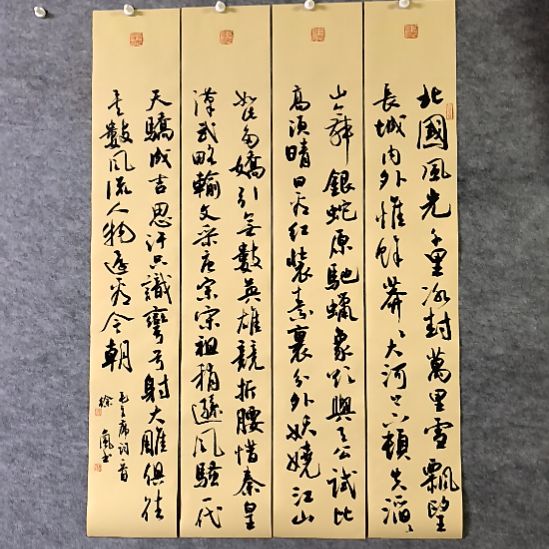 北國風光千里冰封萬里雪飄望
長城内外惟餘莽〻大河上下頓失滔〻
山舞銀蛇原馳蠟象欲與天公試比
高須晴日看紅裝素裹分外妖嬈江山
如此多嬌引無數英雄競折腰惜秦皇
漢武略輸文采唐宗宋祖稍遜風騷一代
天驕成吉思汗只識彎弓射大雕俱往
矣數風流人物還看今朝
毛主席詞一首
徐嵐書